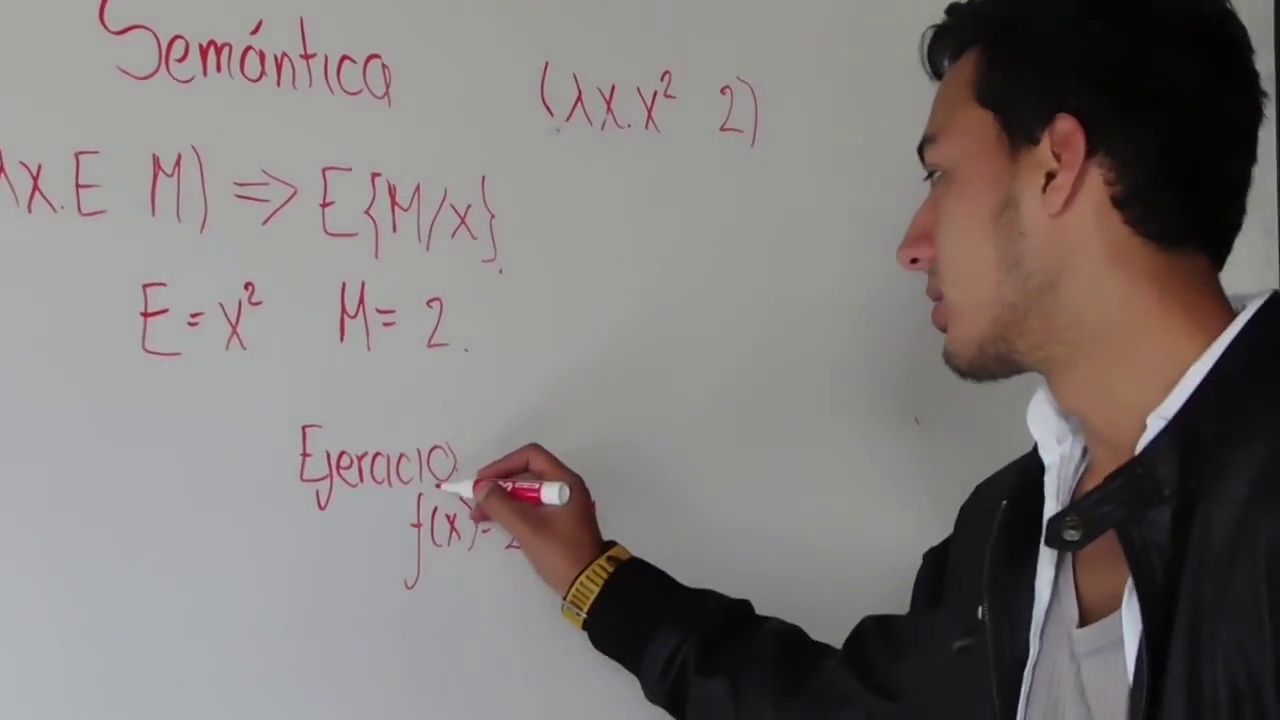 Semántica
(λx.x² 2)
λx.E M) => E{M/x}.
E = x² M = 2.
Ejercicio
f(x) = 2